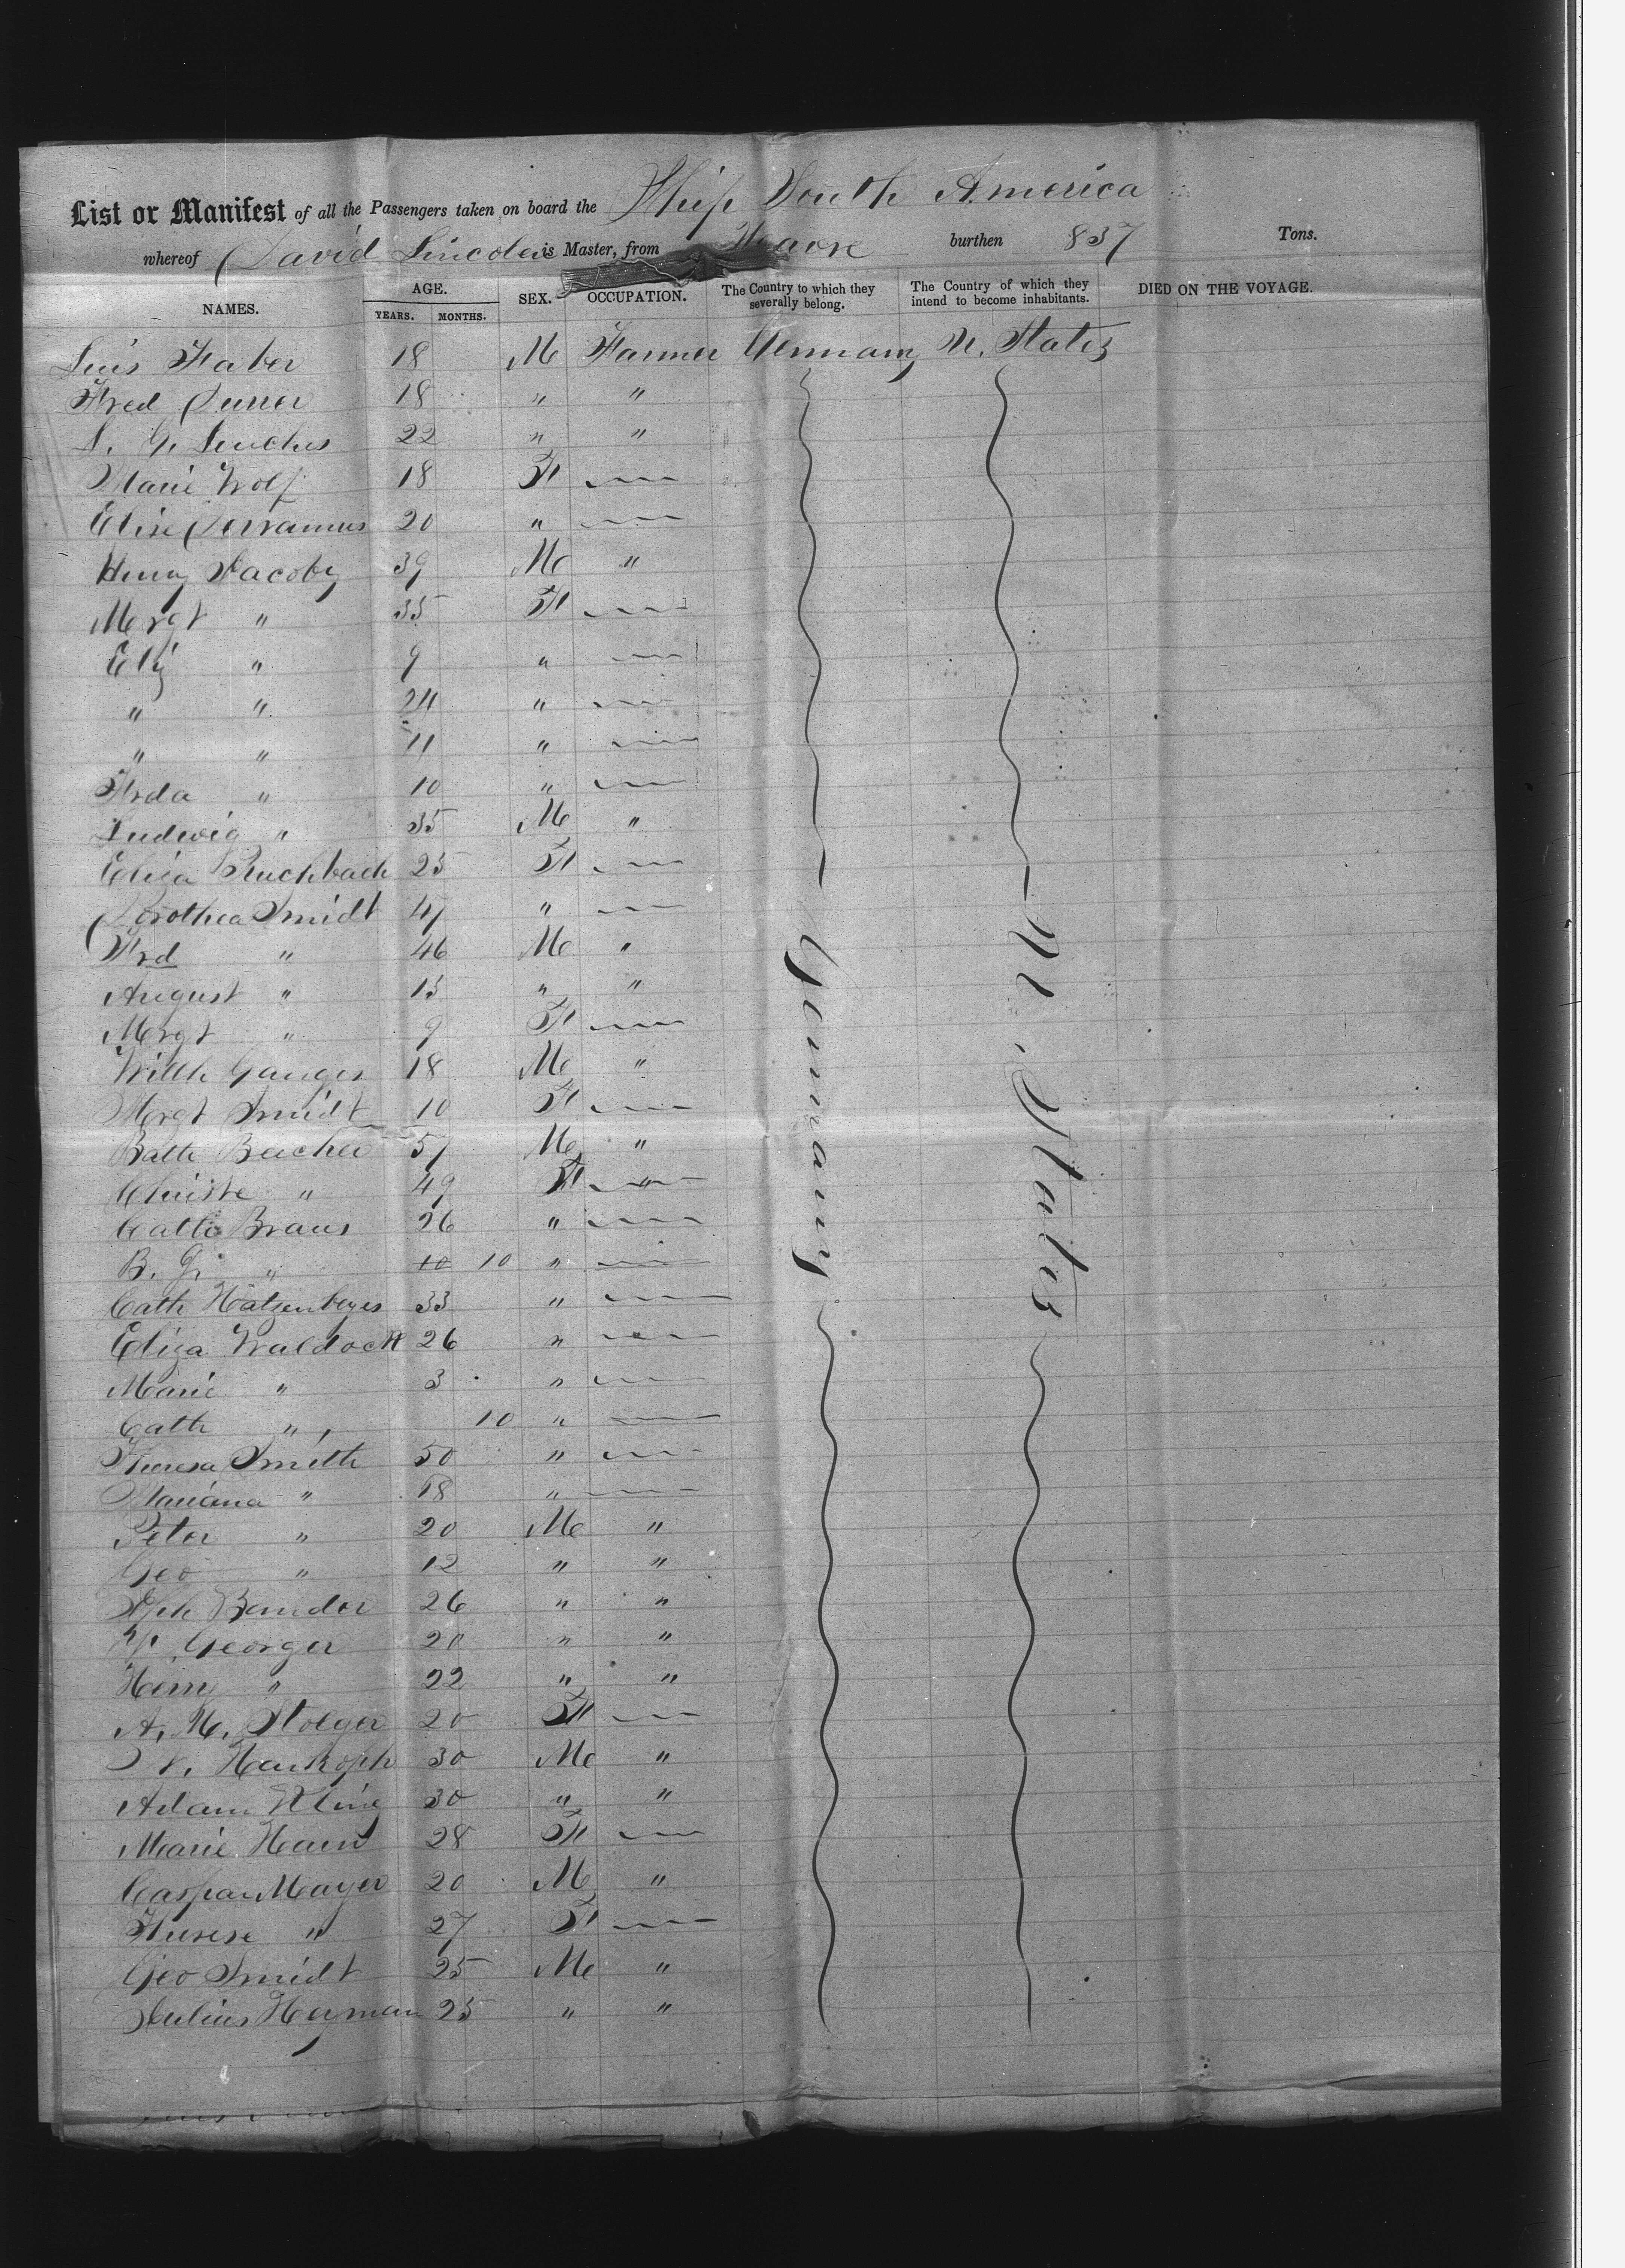 List or Manifest of all the Passengers taken on board the Ship South America
whereof David Lincoln is Master, from Havre burthen 837 Tons.
NAMES. AGE. YEARS. MONTHS. SEX. OCCUPATION. The Country to which they severally belong. The Country of which they intend to become inhabitants. DIED ON THE VOYAGE.
Luis Faber 18 M Farmer Germany U. States
Fred 18 " "
L. G. 22 " "
Marie Wolf 18 F —
Elise 20 " —
Henry Jacoby 39 M "
Mergt " 35 F —
Eliz " 9 " —
" " 24 " —
" " 11 " —
Frda " 10 " —
Ludwig " 35 M "
Eliza Ruchbach 25 F —
Dorothea Smidt 47 " —
Frd " 46 M "
August " 15 " "
Mergt " 9 F —
Wilh Ganges 18 M "
Mergt Smidt 10 F —
Balth Becher 57 M "
Christe " 49 F —
Cathe Braus 26 " —
B. G. " 10 10 " —
Cath 33 " —
Eliza Waldock 26 " —
Marie " 3 " —
Cath " 10 " —
Theresa Smith 50 " —
Mariana " 18 " —
Peter " 20 M "
Geo " 12 " "
Jph Bender 26 " "
Georger 20 " "
Heinr " 22 " "
A. M. Stoeger 20 F —
30 M "
Adam Kline 30 " "
Marie 28 F —
Caspar Mayer 20 M "
Therese " 27 F —
Geo Smidt 25 M "
Julius Heyman 25 " "
Germany
U. States